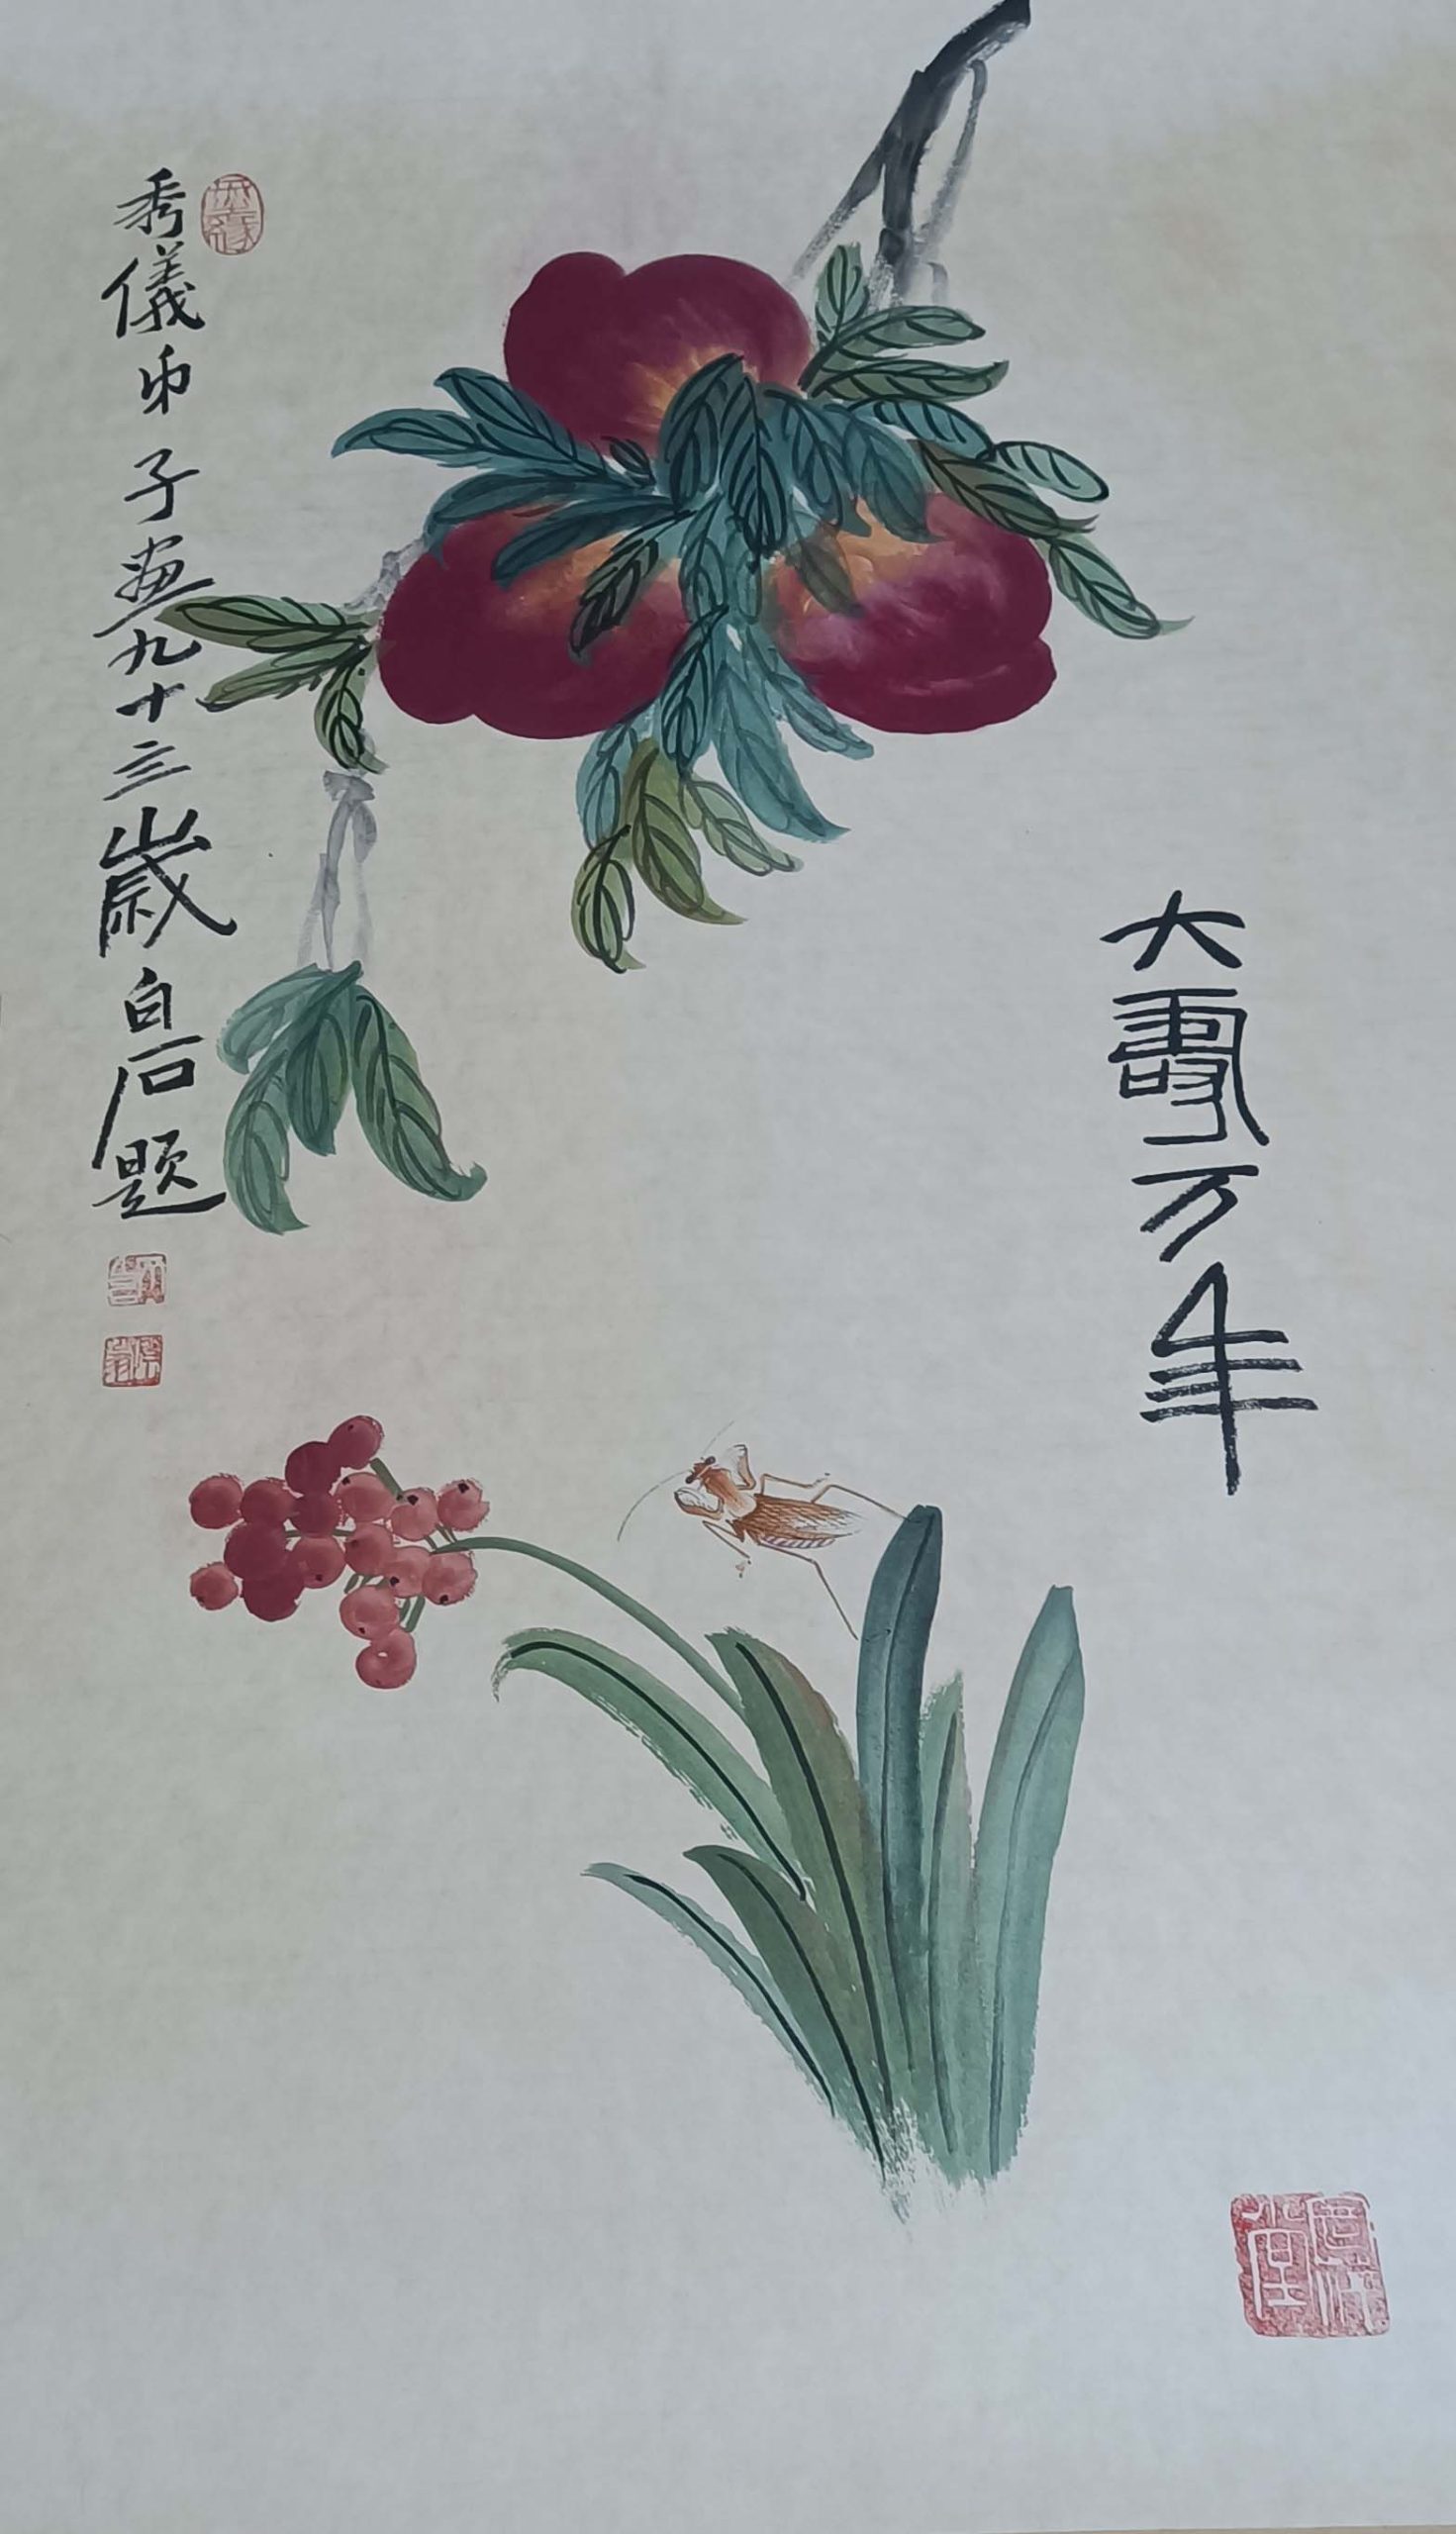 大壽万年
秀儀弟子画九十三歲白石题